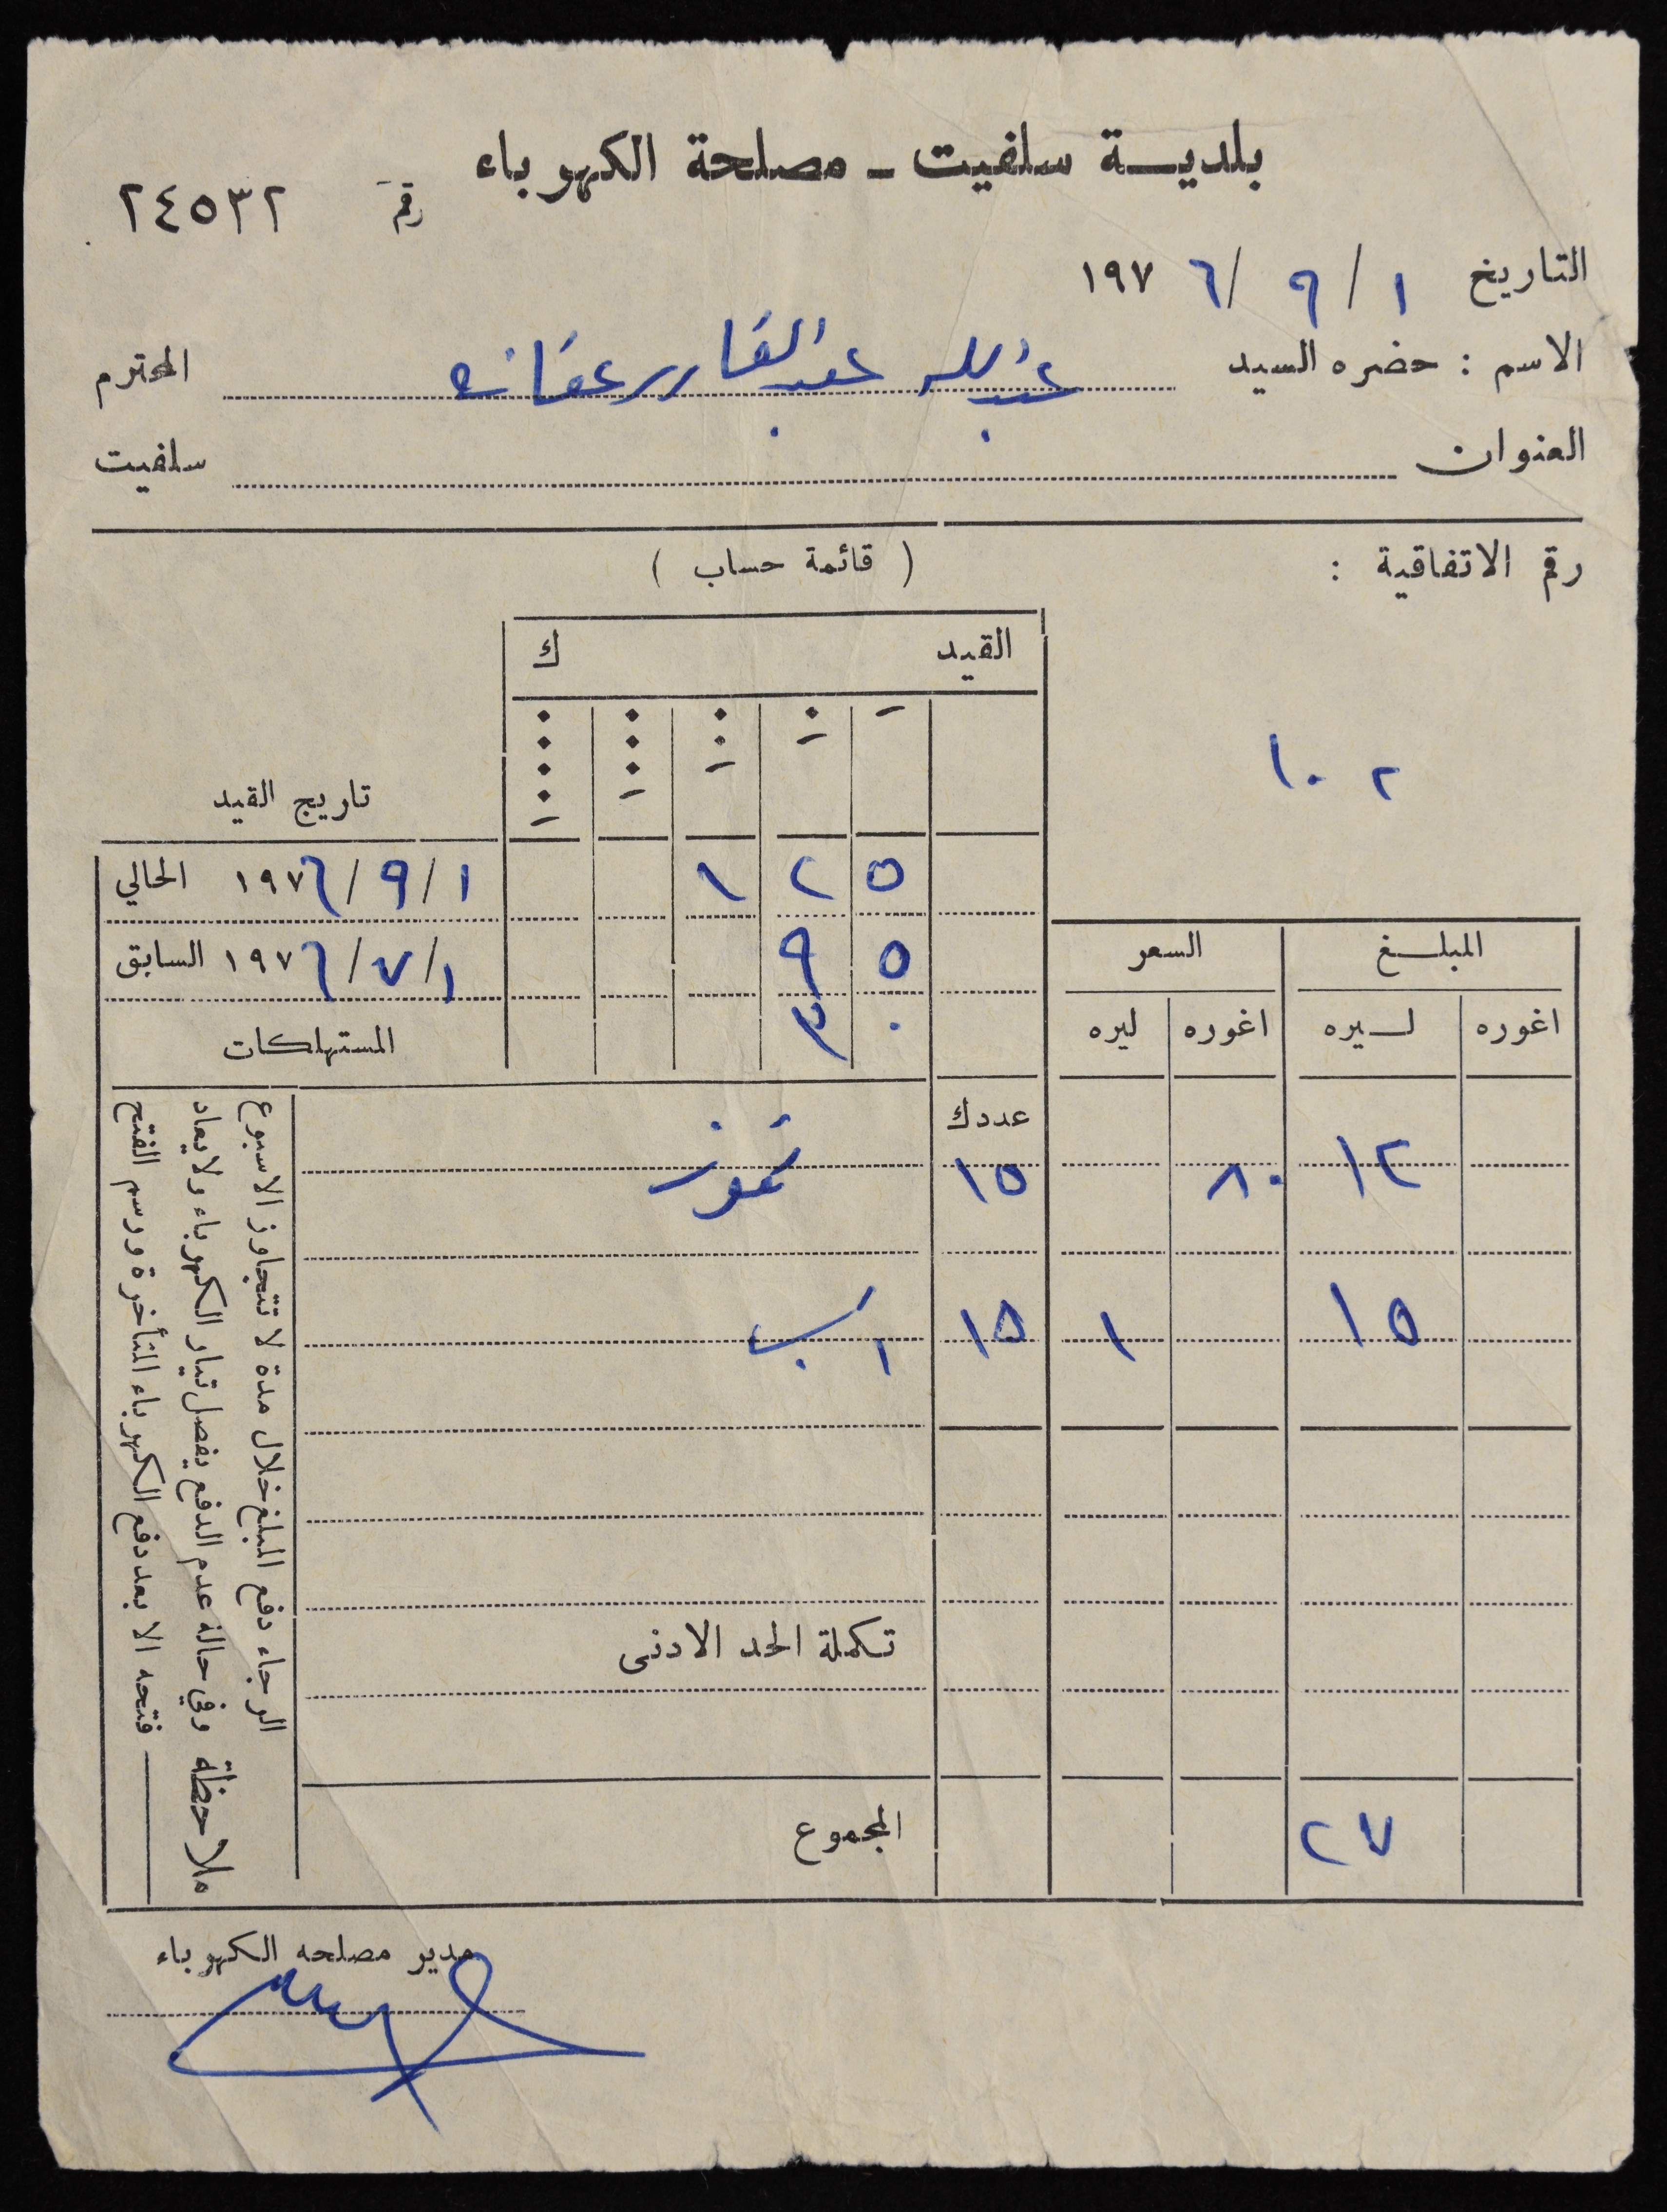 بلديـــة سلفيت ـ مصلحة الكهرباء
رقم ٢٤٥٣٢
التاريخ ١ / ٩ / ١٩٧٦
الاسم : حضره السيد عبد الله عبد القادر عفانه المحترم
العنوان سلفيت
رقم الاتفاقية :
( قائمة حساب )
١٠٢
القيد ك
تاريخ القيد
١٢٥ ١ / ٩ / ١٩٧٦ الحالي
٩٥ ١ / ٧ / ١٩٧٦ السابق
٣٠ المستهلكات
المبلــغ السعر
اغوره لــيره اغوره ليره
عدد ك
١٢ ٨٠ ١٥ تموز
١٥ ١ ١٥ اب
تكملة الحد الادنى
٢٧ المجموع
الرجاء دفع المبلغ خلال مدة لا تتجاوز الاسبوع
ملاحظة وفي حالة عدم الدفع يفصل تيار الكهرباء ولا يعاد
فتحه الا بعد دفع الكهرباء المتأخرة ورسم الفتح
مدير مصلحه الكهرباء